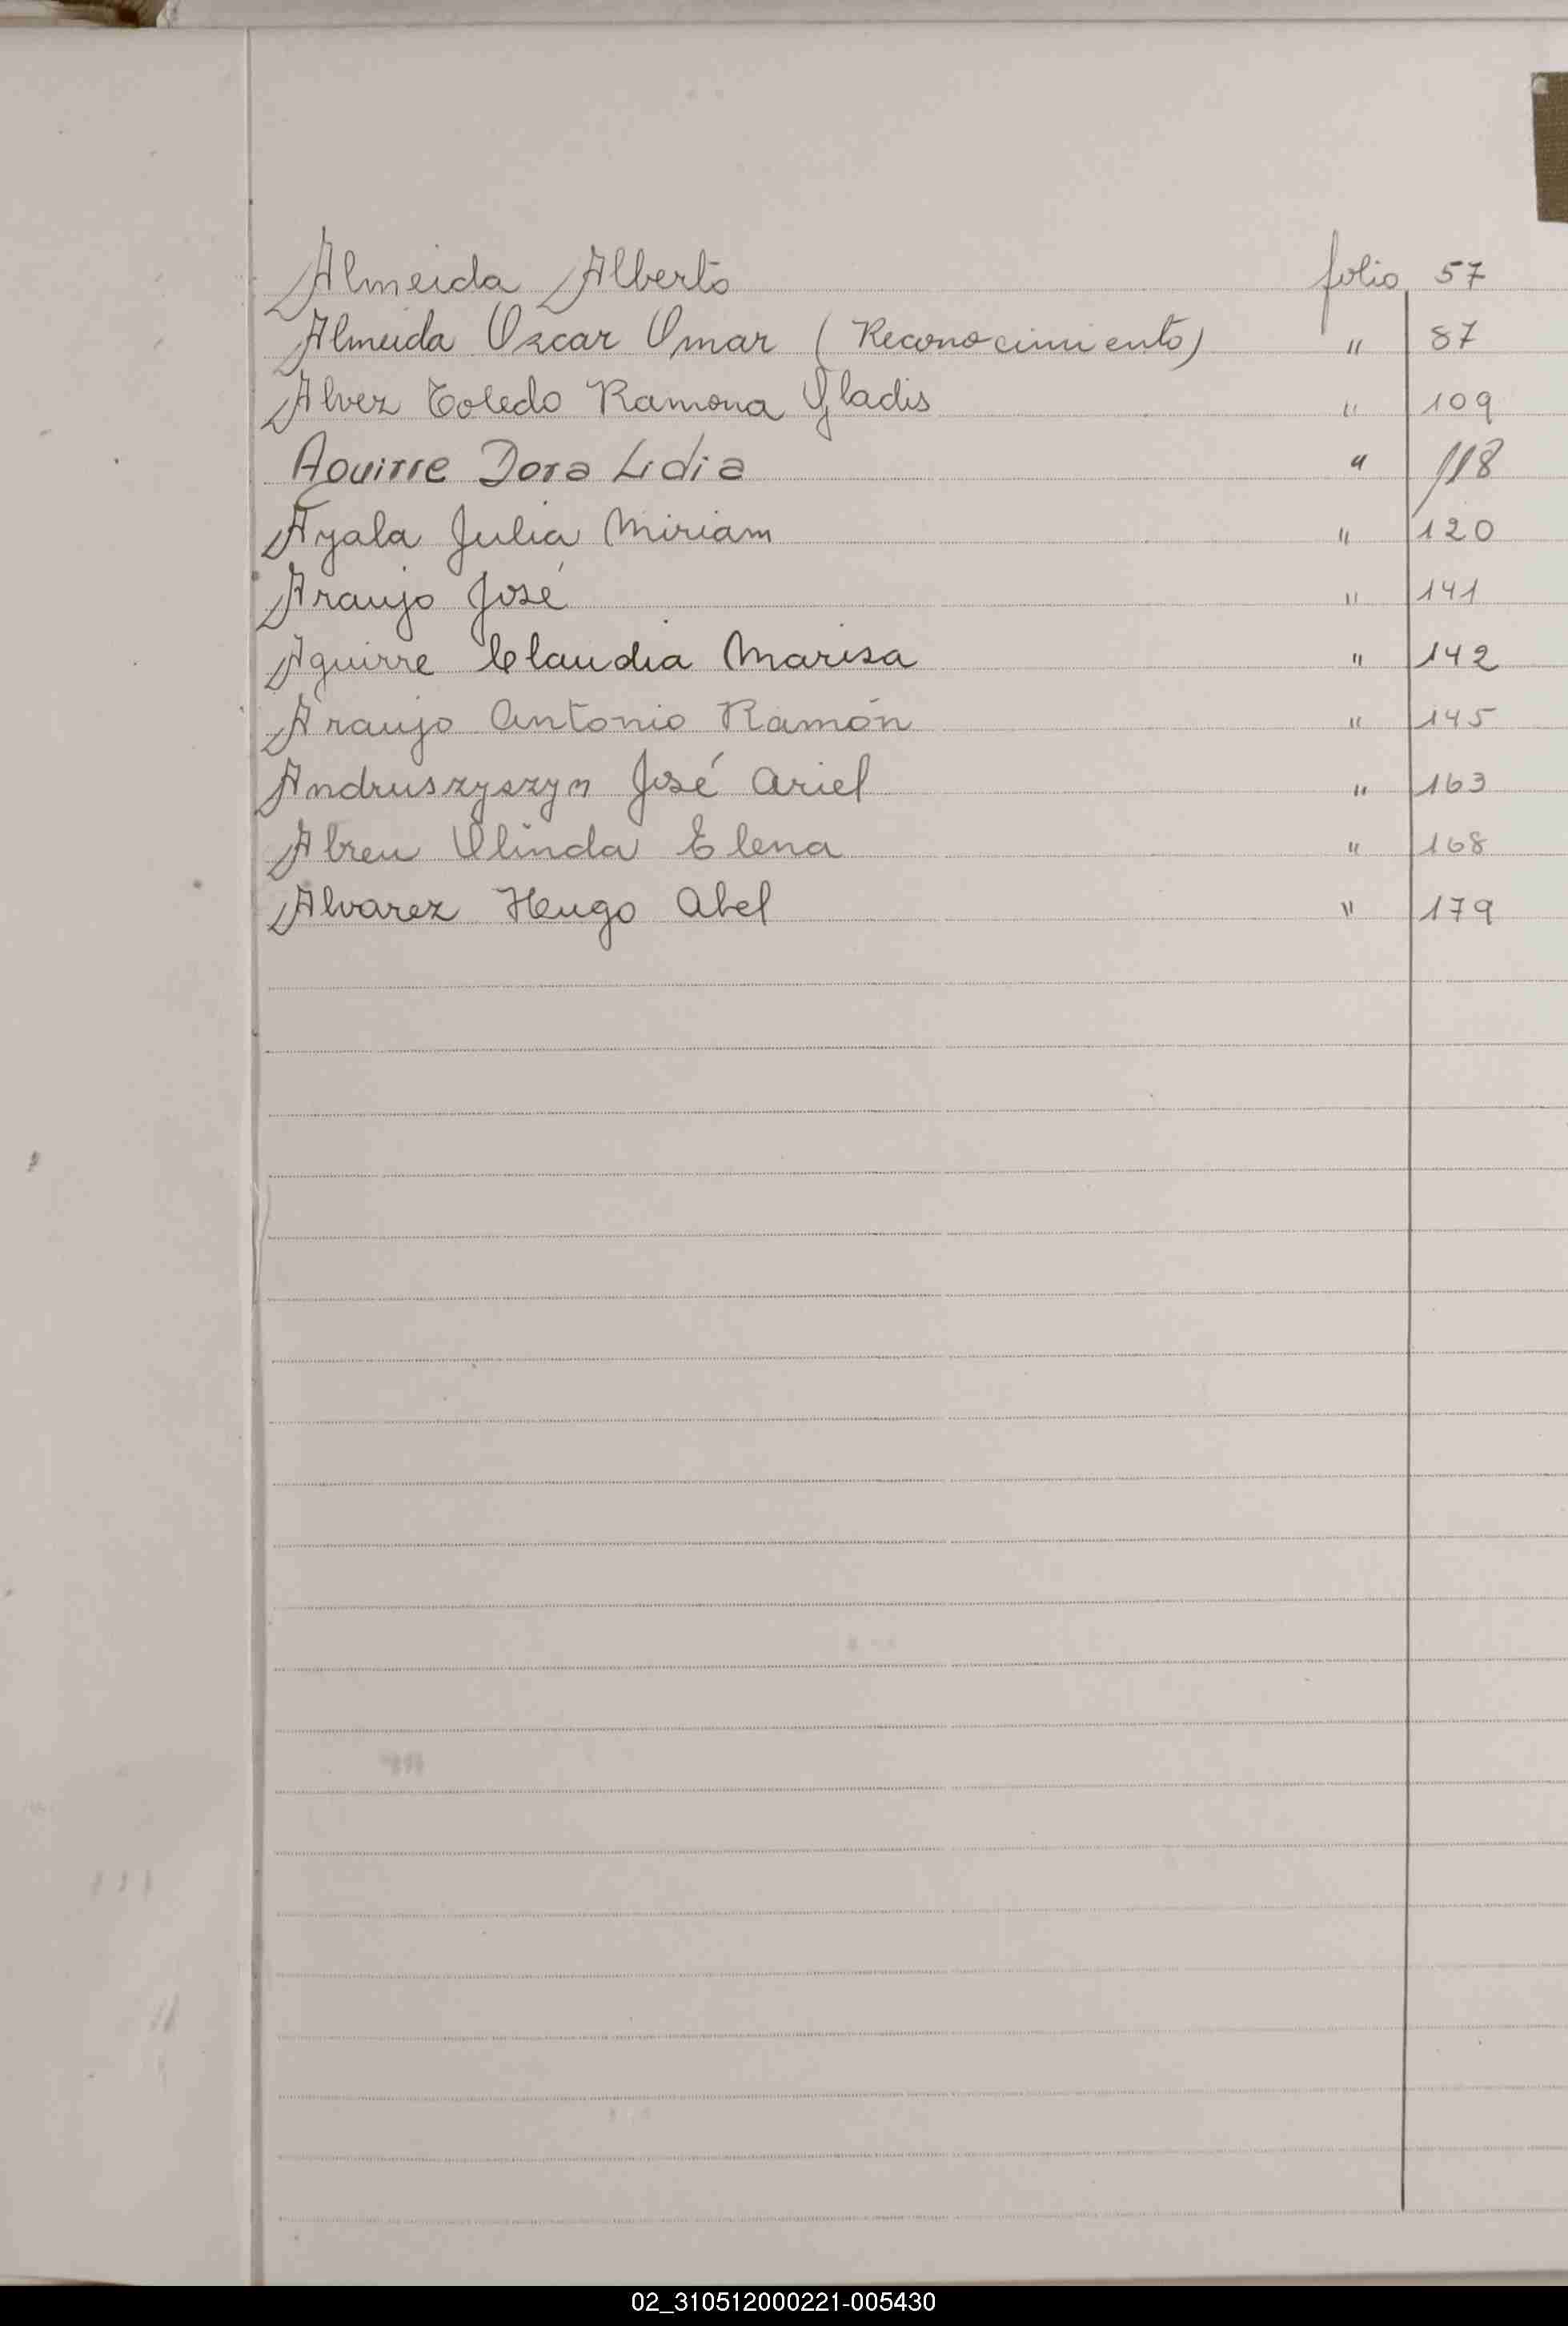 Almeida Alberto folio 57
Almeida Oscar Omar (Reconocimiento) " 87
Alvez Toledo Ramona Gladis " 109
Aguirre Dora Lidia " 118
Ayala Julia Miriam " 120
Araujo José " 141
Aguirre Claudia Marisa " 142
Araujo Antonio Ramón " 145
Andruszyszyn José Ariel " 163
Abreu Olinda Elena " 168
Alvarez Hugo Abel " 179
02_310512000221-005430